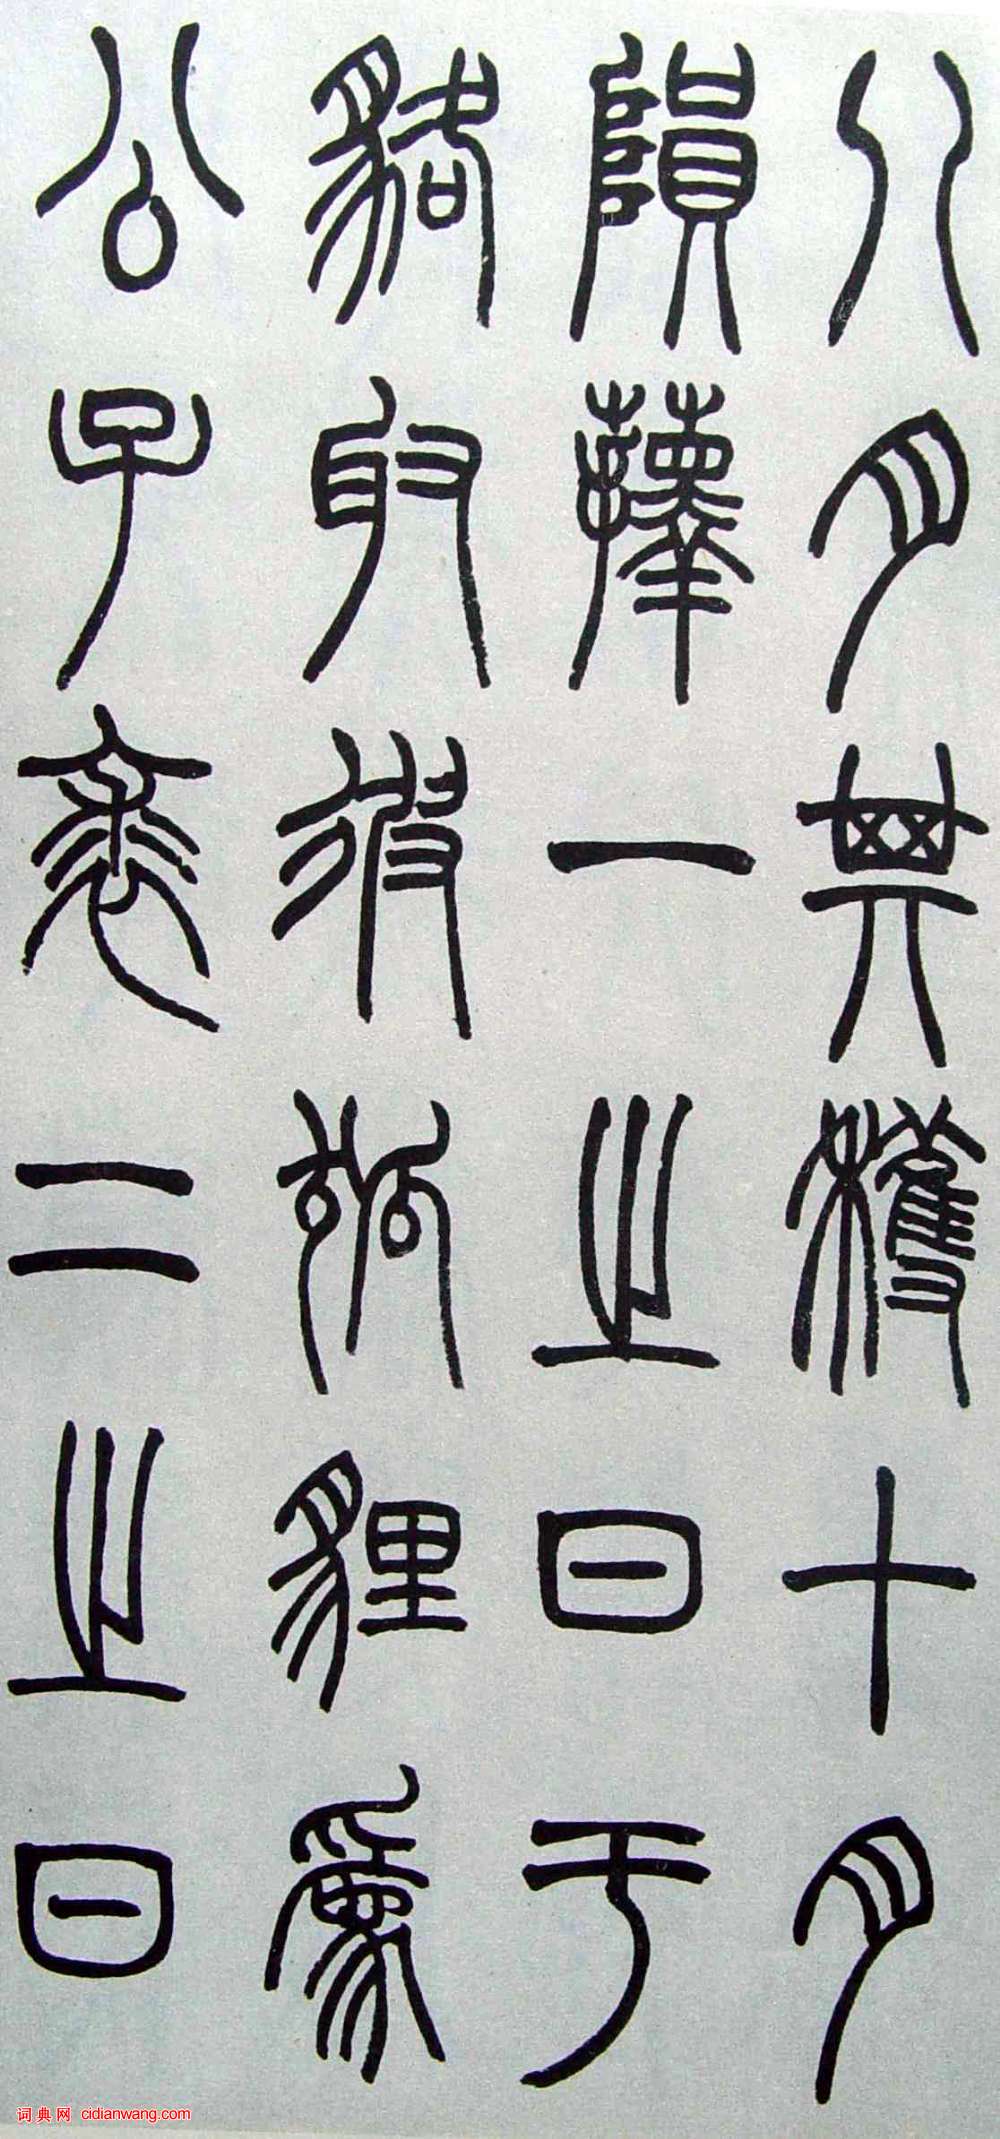 八月其穫十月
隕蘀一之日于
貉取彼狐貍爲
公子裘二之日
词典网 cidianwang.com